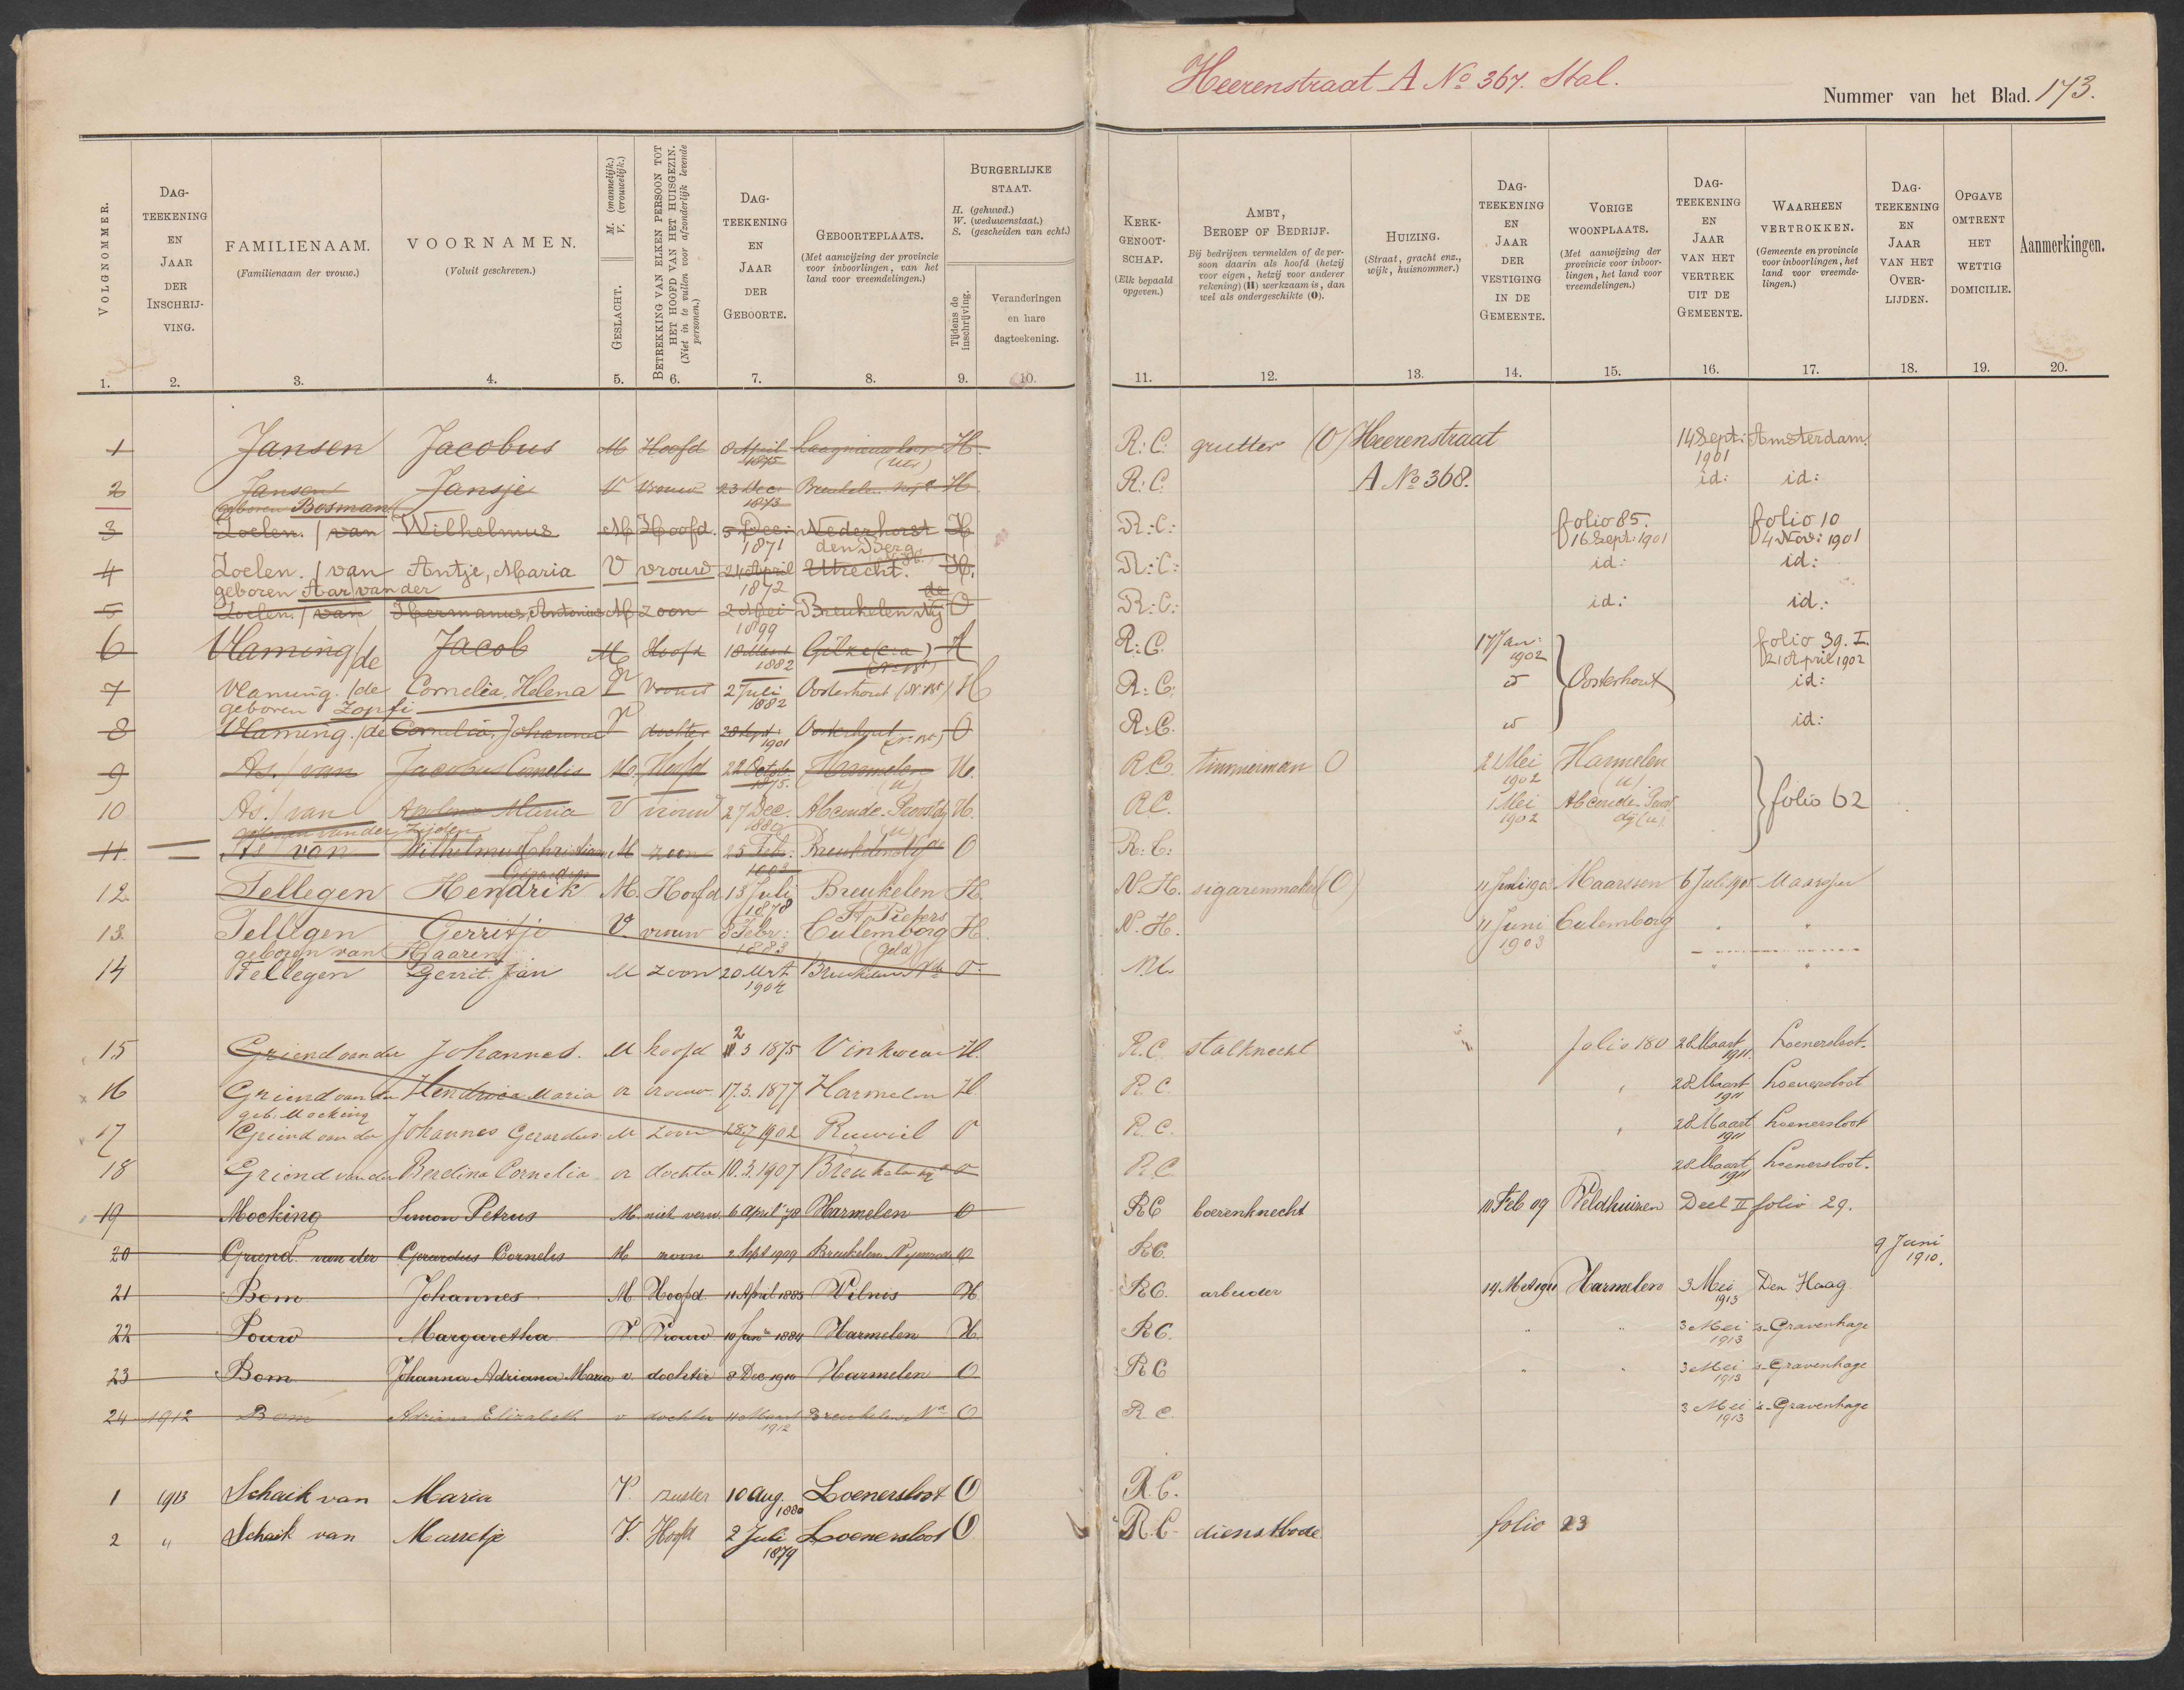 Heerenstraat A No 367. Stal.
Nummer van het Blad. 173.
VOLGNOMMER.
DAG-TEEKENING EN JAAR DER INSCHRIJ-VING.
FAMILIENAAM. (Familienaam der vrouw.)
VOORNAMEN. (Voluit geschreven.)
GESLACHT. M. (mannelijk.) V. (vrouwelijk.)
BETREKKING VAN ELKEN PERSOON TOT HET HOOFD VAN HET HUISGEZIN. (Niet in te vullen voor afzonderlijk levende personen.)
DAG-TEEKENING EN JAAR DER GEBOORTE.
GEBOORTEPLAATS. (Met aanwijzing der provincie voor inboorlingen, van het land voor vreemdelingen.)
BURGERLIJKE STAAT. H. (gehuwd.) W. (weduwenstaat.) S. (gescheiden van echt.)
Tijdens de inschrijving.
Veranderingen en hare dagteekening.
KERK-GENOOT-SCHAP. (Elk bepaald opgeven.)
AMBT, BEROEP OF BEDRIJF. Bij bedrijven vermelden of de persoon daarin als hoofd (hetzij voor eigen, hetzij voor anderer rekening) (H) werkzaam is, dan wel als ondergeschikte (O).
HUIZING. (Straat, gracht enz., wijk, huisnommer.)
DAG-TEEKENING EN JAAR DER VESTIGING IN DE GEMEENTE.
VORIGE WOONPLAATS. (Met aanwijzing der provincie voor inboorlingen, het land voor vreemdelingen.)
DAG-TEEKENING EN JAAR VAN HET VERTREK UIT DE GEMEENTE.
WAARHEEN VERTROKKEN. (Gemeente en provincie voor inboorlingen, het land voor vreemdelingen.)
DAG-TEEKENING EN JAAR VAN HET OVER-LIJDEN.
OPGAVE OMTRENT HET WETTIG DOMICILIE.
Aanmerkingen.
1. 2. 3. 4. 5. 6. 7. 8. 9. 10. 11. 12. 13. 14. 15. 16. 17. 18. 19. 20.
1 Jansen Jacobus M Hoofd 8 April 1875 (Utr) H. R: C: grutter (O) Heerenstraat 14 Sept: 1901 Amsterdam.
2 Jansen geboren Bosman Jansje V vrouw 23 Dec. 1873 Breukelen Nij H. R: C. A No 368. id: id:
3 Zoelen. / van Wilhelmus M Hoofd. 5 Dec: 1871 Nederhorst den Berg H R.:C.: folio 85. 16 Sept: 1901 folio 10 4 Nov: 1901
4 Zoelen. / van geboren Aar / van der Antje, Maria V vrouw 24 April 1872 Utrecht. H. R.:C.: id: id:
5 Zoelen. / van Hermanus, Antonius M zoon 2 Mei 1899 Breukelen Nij de O R.:C.: id: id:
6 Vlaming / de Jacob M Hoofd 18 Maart 1882 Gilze (c.a) H R.:C. 17 Jan: 1902 Oosterhout folio 39. I. 21 April 1902
7 Vlaming. / de geboren Zopfi Cornelia, Helena V vrouw 2 Juli 1882 Oosterhout (N. Bt) H R.:C. id:
8 Vlaming. / de Cornelia, Johanna V dochter 28 Sept 1901 Oosterhout (N. Bt) O R.:C. id:
9 As. / van Jacobus Cornelis M. Hoofd 22 Octob. 1875. Harmelen (u) H. R.C. timmerman O 2 Mei 1902 Harmelen (u).
10 As. / van Maria V vrouw 27 Dec. 1880 Abcoude-Proostdij (u) H. R.C. 1 Mei 1902 Abcoude-Proostdij (u) folio 62
11. As van Wilhelmus Christiaan Gerardus M zoon 25 Feb. Breukelen Nij de O R:C:
12. Tellegen Hendrik M. Hoofd 13 Juli 1878 Breukelen St Pieters H. N.H. sigarenmaker (O) 11 Juni 1903 Maarssen 6 Juli 1905 Maarssen
13. Tellegen geboren van Haaren Gerritje V. vrouw 8 Febr: 1883 Culemborg (Geld) H. N.H. 11 Juni 1903 Culemborg " "
14 Tellegen Gerrit Jan M zoon 20 Mrt. 1904 Breukelen O. N.H. " "
15 Griend van der Johannes. M hoofd 2 3 1875 Vinkeveen H. R.C. stalknecht folio 180 28 Maart 1911. Loenersloot.
16 Griend van der geb. Mocking Hendrica Maria v vrouw 17.3.1877 Harmelen H. R.C. 28 Maart 1911 Loenersloot
17 Griend van der Johannes Gerardus M zoon 28.7 1902 Ruwiel O R.C. 28 Maart 1911 Loenersloot
18 Griend van der Berdina Cornelia v dochter 10.3.1907 Breukelen O R.C. 28 Maart 1911 Loenersloot.
19 Mocking Simon Petrus M. niet verw. 6 April 78 Harmelen O RC boerenknecht 11 Feb 09 Veldhuizen Deel II folio 29.
20 Griend van der Gerardus Cornelis M zoon 2 Sept 1909 Breukelen Nijenrode O RC. 9 Juni 1910.
21 Bom Johannes M. Hoofd. 11 April 1885 Wilnis H RC. arbeider 14 Mrt 1911 Harmelen 3 Mei 1913 Den Haag
22 Pouw Margaretha V. Vrouw 10 Jan 1884 Harmelen H. RC. " " 3 Mei 1913 's-Gravenhage
23 Bom Johanna Adriana Maria v. dochter 8 Dec 1910 Harmelen O RC " " 3 Mei 1913 's-Gravenhage
24 1912 Bom Adriana Elizabeth v dochter 11 Maart 1912 Breukelen O R.C. 3 Mei 1913 's-Gravenhage
1 1913 Schaik van Maria V. zuster 10 Aug. 1880 Loenersloot O R.C.
2 " Schaik van Marretje V. Hoofd 2 Juli 1879 Loenersloot O R.C. dienstbode folio 23